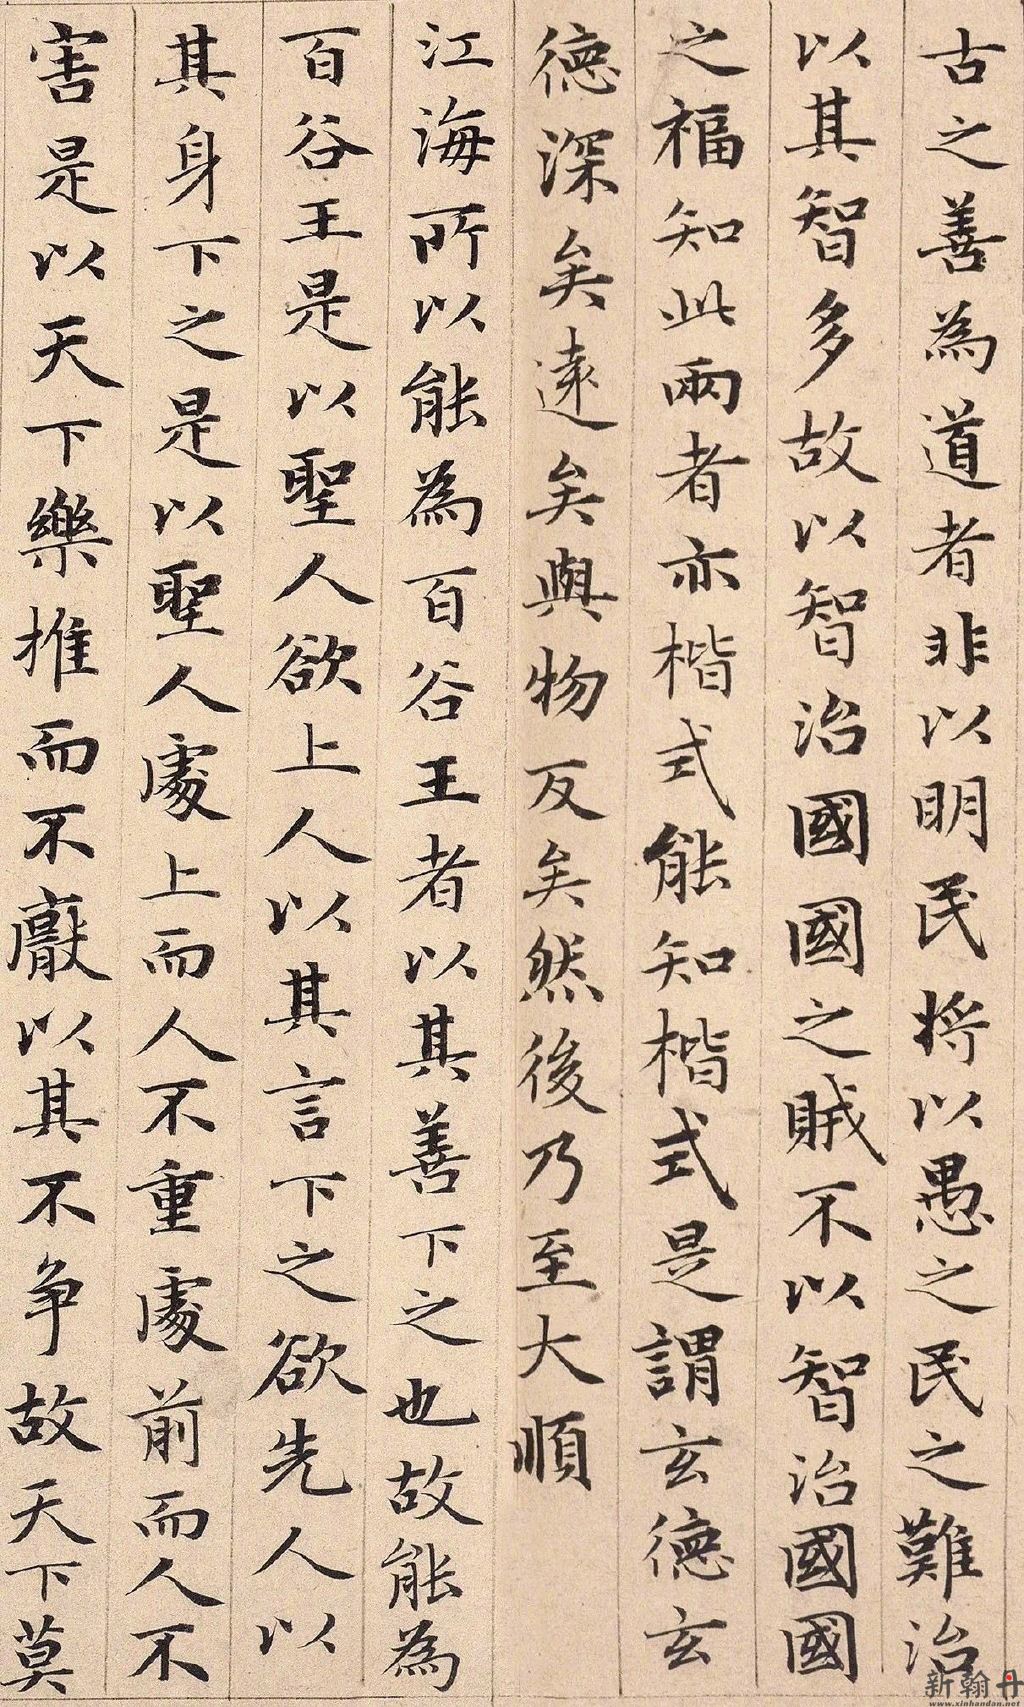 古之善為道者非以明民將以愚之民之難治
以其智多故以智治國國之賊不以智治國國
之福知此兩者亦楷式能知楷式是謂玄德玄
德深矣遠矣與物反矣然後乃至大順
江海所以能為百谷王者以其善下之也故能為
百谷王是以聖人欲上人以其言下之欲先人以
其身下之是以聖人處上而人不重處前而人不
害是以天下樂推而不厭以其不争故天下莫
新翰丹
www.xinhandan.net